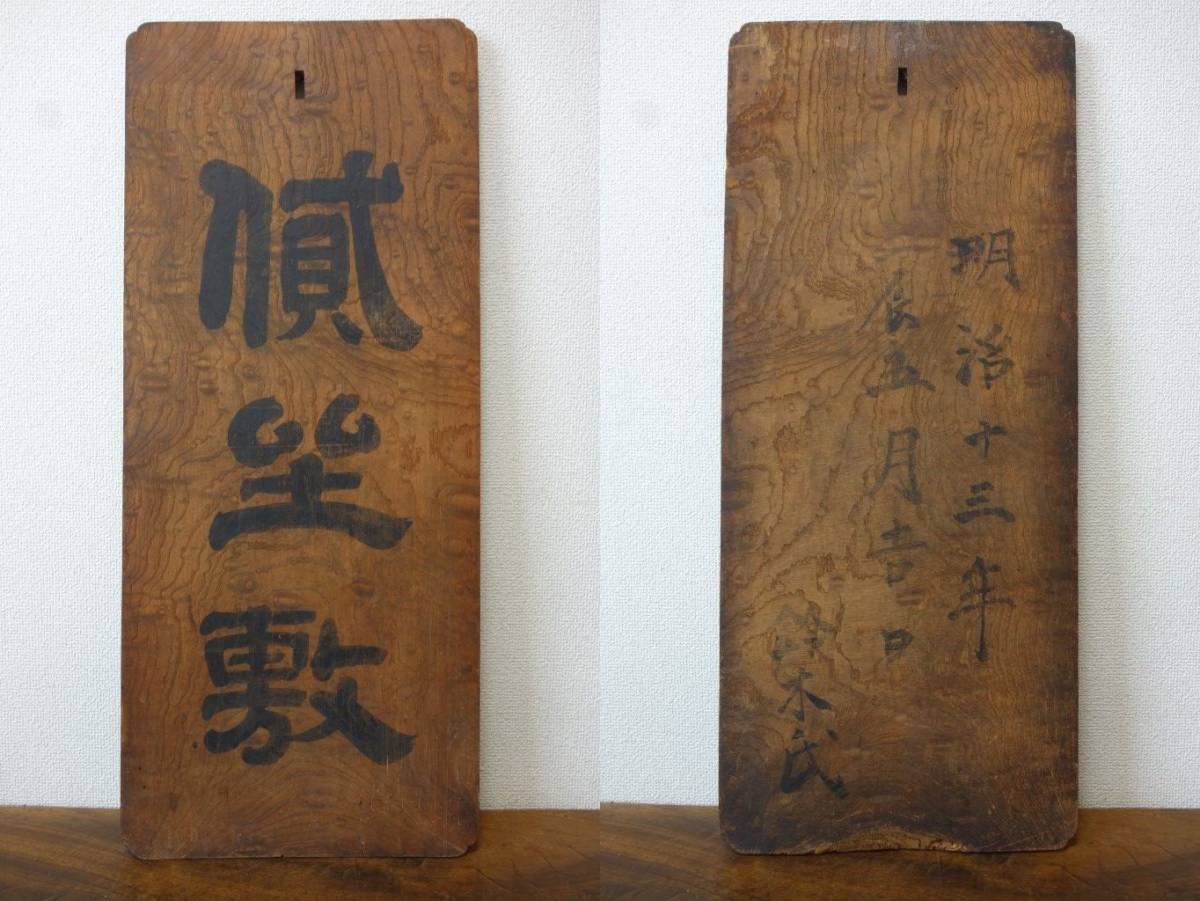 貸坐敷
明治十三年
辰五月吉日
鈴木氏